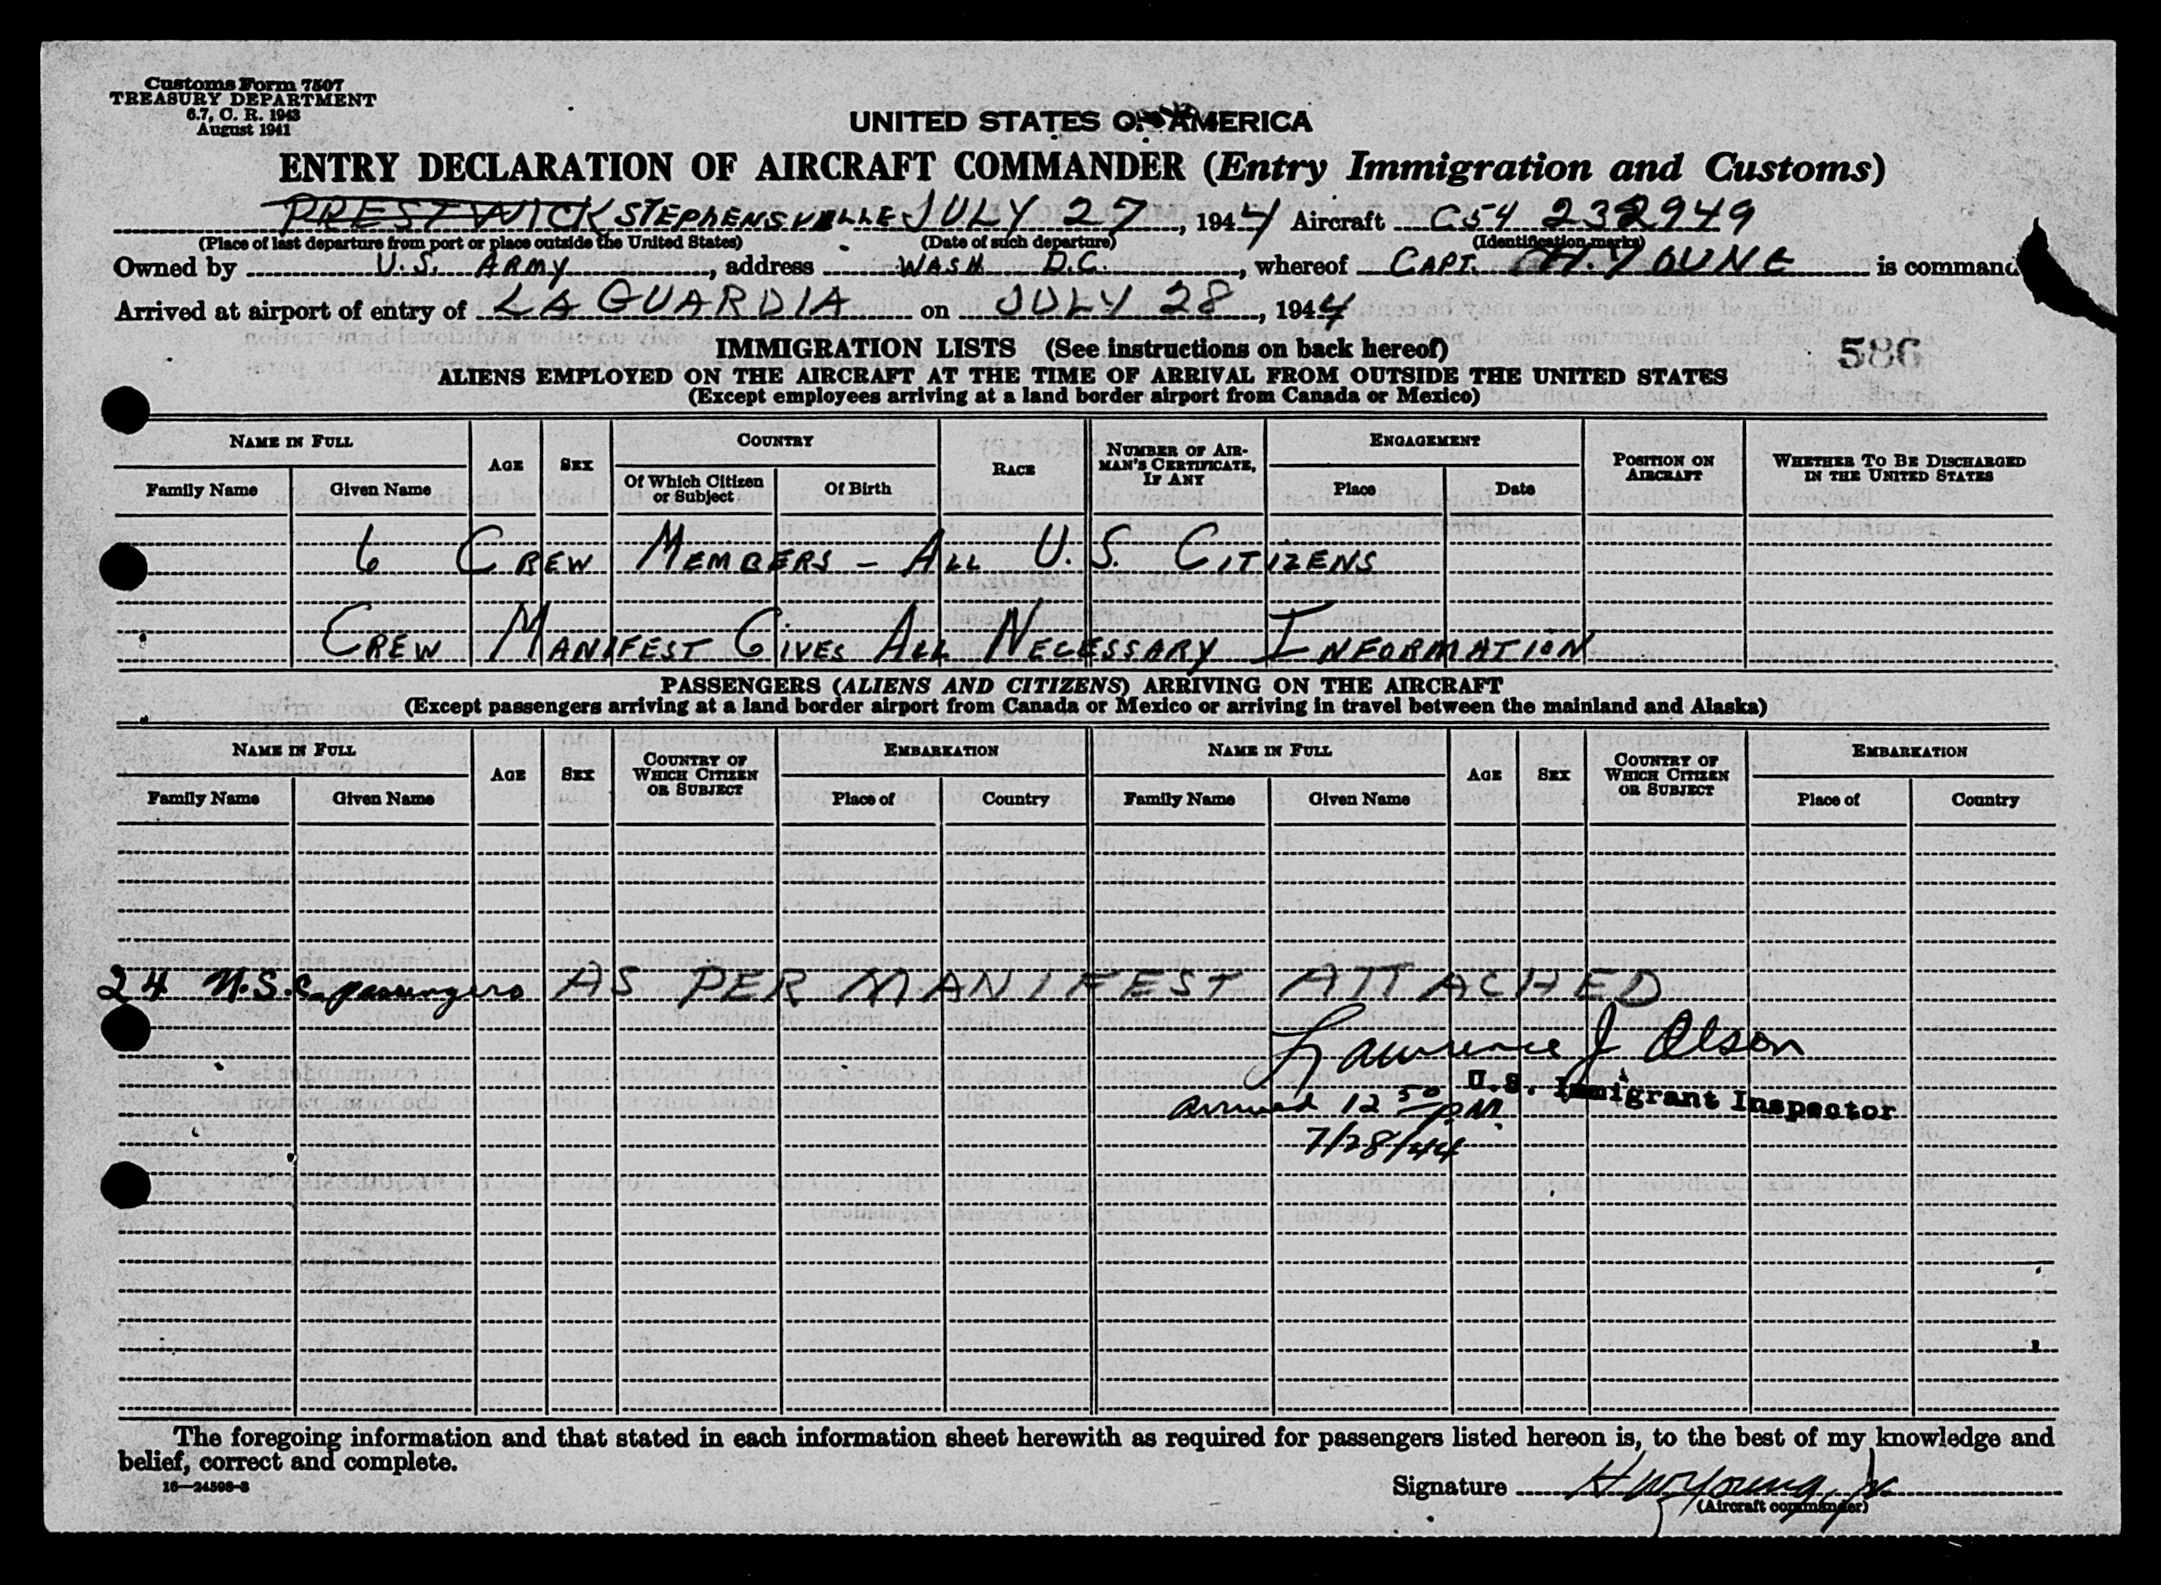 Customs Form 7507
TREASURY DEPARTMENT
6.7, C. R. 1943
August 1941
UNITED STATES OF AMERICA
ENTRY DECLARATION OF AIRCRAFT COMMANDER (Entry Immigration and Customs)
PRESTWICK STEPHENSVILLE JULY 27, 1944 Aircraft C54 232949
(Place of last departure from port or place outside the United States) (Date of such departure) (Identification marks)
Owned by U.S. ARMY, address WASH D.C., whereof CAPT. H. YOUNG is command
Arrived at airport of entry of LA GUARDIA on JULY 28, 1944
586
IMMIGRATION LISTS (See instructions on back hereof)
ALIENS EMPLOYED ON THE AIRCRAFT AT THE TIME OF ARRIVAL FROM OUTSIDE THE UNITED STATES
(Except employees arriving at a land border airport from Canada or Mexico)
NAME IN FULL AGE SEX COUNTRY RACE NUMBER OF AIRMAN'S CERTIFICATE, IF ANY ENGAGEMENT POSITION ON AIRCRAFT WHETHER TO BE DISCHARGED IN THE UNITED STATES
Family Name Given Name Of Which Citizen or Subject Of Birth Place Date
6 CREW MEMBERS - ALL U.S. CITIZENS
CREW MANIFEST GIVES ALL NECESSARY INFORMATION
PASSENGERS (ALIENS AND CITIZENS) ARRIVING ON THE AIRCRAFT
(Except passengers arriving at a land border airport from Canada or Mexico or arriving in travel between the mainland and Alaska)
NAME IN FULL AGE SEX COUNTRY OF WHICH CITIZEN OR SUBJECT EMBARKATION NAME IN FULL AGE SEX COUNTRY OF WHICH CITIZEN OR SUBJECT EMBARKATION
Family Name Given Name Place of Country Family Name Given Name Place of Country
24 U.S.C. passengers AS PER MANIFEST ATTACHED
Lawrence J Olson
U.S. Immigrant Inspector
arrived 12 50 PM
7/28/44
The foregoing information and that stated in each information sheet herewith as required for passengers listed hereon is, to the best of my knowledge and
belief, correct and complete.
16—24598-2
Signature H W Young, Jr.
(Aircraft commander)